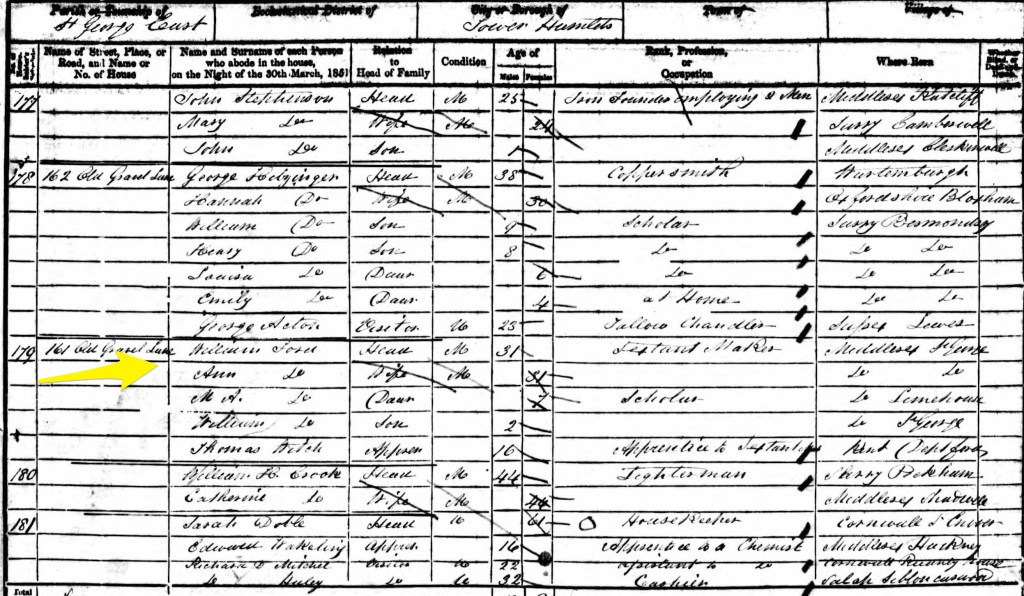 Parish or Township of Ecclesiastical District of City or Borough of Town of Village of
St George East Tower Hamlets
Name of Street, Place, or Road, and Name or No. of House Name and Surname of each Person who abode in the house, on the Night of the 30th March, 1851 Relation to Head of Family Condition Age of Males Females Rank, Profession, or Occupation Where Born
177 John Stephenson Head M 25 Iron Founder employing 2 Men Middlesex Ratcliff
Mary Do Wife M 24 Surry Camberwell
John Do Son 1 Middlesex Clerkenwell
178 162 Old Gravel Lane George Head M 38 Coppersmith Wurtemburgh
Hannah Do Wife M 30 Oxfordshire Bloxham
William Do Son 9 Scholar Surry Bermondsey
Henry Do Son 8 Do Do Do
Louisa Do Daur 6 Do Do Do
Emily Do Daur 4 at Home Do Do
George Acton Visitor U 23 Tallow Chandler Sussex Lewes
179 161 Old Gravel Lane William Ford Head M 31 Sextant Maker Middlesex St George
Ann Do Wife M 31 Do Do
M A. Do Daur 7 Scholar Do Limehouse
William Do Son 2 Do St George
Thomas Appren 16 Apprentice to Sextant Kent Deptford
180 William H. Crook Head M 44 Lighterman Surry Peckham
Catherine Do Wife M 44 Middlesex
181 Sarah Doble Head U 61 HouseKeeper Cornwall
Edward Wakeling Appren 16 Apprentice to a Chemist Middlesex Hackney
Richard D Mitchel Visitor U 22 Assistant to Do Cornwall
Do Do U 32 Cashier
Total